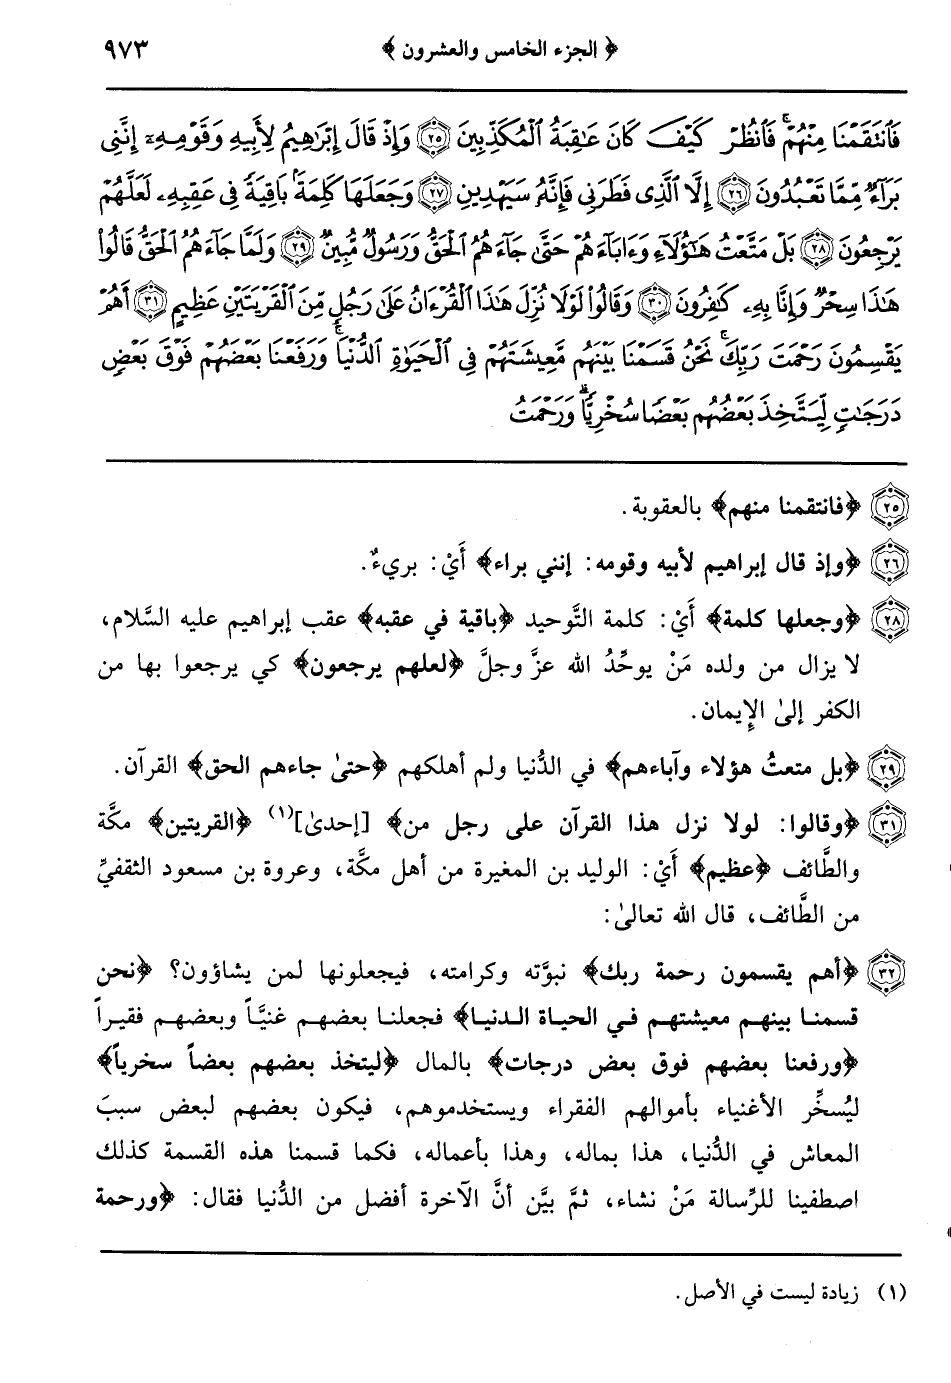 ﴿ الجزء الخامس والعشرون ﴾ ٩٧٣
فَٱنتَقَمْنَا مِنْهُمْ ۖ فَٱنظُرْ كَيْفَ كَانَ عَٰقِبَةُ ٱلْمُكَذِّبِينَ ٢٥ وَإِذْ قَالَ إِبْرَٰهِيمُ لِأَبِيهِ وَقَوْمِهِۦٓ إِنَّنِى
بَرَآءٌ مِّمَّا تَعْبُدُونَ ٢٦ إِلَّا ٱلَّذِى فَطَرَنِى فَإِنَّهُۥ سَيَهْدِينِ ٢٧ وَجَعَلَهَا كَلِمَةًۢ بَاقِيَةً فِى عَقِبِهِۦ لَعَلَّهُمْ
يَرْجِعُونَ ٢٨ بَلْ مَتَّعْتُ هَٰٓؤُلَآءِ وَءَابَآءَهُمْ حَتَّىٰ جَآءَهُمُ ٱلْحَقُّ وَرَسُولٌ مُّبِينٌ ٢٩ وَلَمَّا جَآءَهُمُ ٱلْحَقُّ قَالُوا۟
هَٰذَا سِحْرٌ وَإِنَّا بِهِۦ كَٰفِرُونَ ٣٠ وَقَالُوا۟ لَوْلَا نُزِّلَ هَٰذَا ٱلْقُرْءَانُ عَلَىٰ رَجُلٍ مِّنَ ٱلْقَرْيَتَيْنِ عَظِيمٍ ٣١ أَهُمْ
يَقْسِمُونَ رَحْمَتَ رَبِّكَ ۚ نَحْنُ قَسَمْنَا بَيْنَهُم مَّعِيشَتَهُمْ فِى ٱلْحَيَوٰةِ ٱلدُّنْيَا ۚ وَرَفَعْنَا بَعْضَهُمْ فَوْقَ بَعْضٍ
دَرَجَٰتٍ لِّيَتَّخِذَ بَعْضُهُم بَعْضًا سُخْرِيًّا ۗ وَرَحْمَتُ
٢٥ ﴿فانتقمنا منهم﴾ بالعقوبة.
٢٦ ﴿وإذ قال إبراهيم لأبيه وقومه: إنني براء﴾ أَيْ: بريءٌ.
٢٨ ﴿وجعلها كلمة﴾ أَيْ: كلمة التَّوحيد ﴿باقية في عقبه﴾ عقب إبراهيم عليه السَّلام،
لا يزال من ولده مَنْ يوحِّدُ الله عزَّ وجلَّ ﴿لعلهم يرجعون﴾ كي يرجعوا بها من
الكفر إلىٰ الإِيمان.
٢٩ ﴿بل متعتُ هؤلاء وآباءهم﴾ في الدُّنيا ولم أهلكهم ﴿حتىٰ جاءهم الحق﴾ القرآن.
٣١ ﴿وقالوا: لولا نزل هذا القرآن على رجل من﴾ [إحدىٰ](١) ﴿القريتين﴾ مكَّة
والطَّائف ﴿عظيم﴾ أَيْ: الوليد بن المغيرة من أهل مكَّة، وعروة بن مسعود الثقفيِّ
من الطَّائف، قال الله تعالىٰ:
٣٢ ﴿أهم يقسمون رحمة ربك﴾ نبوَّته وكرامته، فيجعلونها لمن يشاؤون؟ ﴿نحن
قسمنا بينهم معيشتهم في الحياة الدنيا﴾ فجعلنا بعضهم غنيَّاً وبعضهم فقيراً
﴿ورفعنا بعضهم فوق بعض درجات﴾ بالمال ﴿ليتخذ بعضهم بعضاً سخرياً﴾
ليُسخِّر الأغنياء بأموالهم الفقراء ويستخدموهم، فيكون بعضهم لبعض سببَ
المعاش في الدُّنيا، هذا بماله، وهذا بأعماله، فكما قسمنا هذه القسمة كذلك
اصطفينا للرِّسالة مَنْ نشاء، ثمَّ بيَّن أنَّ الآخرة أفضل من الدُّنيا فقال: ﴿ورحمة
(١) زيادة ليست في الأصل.